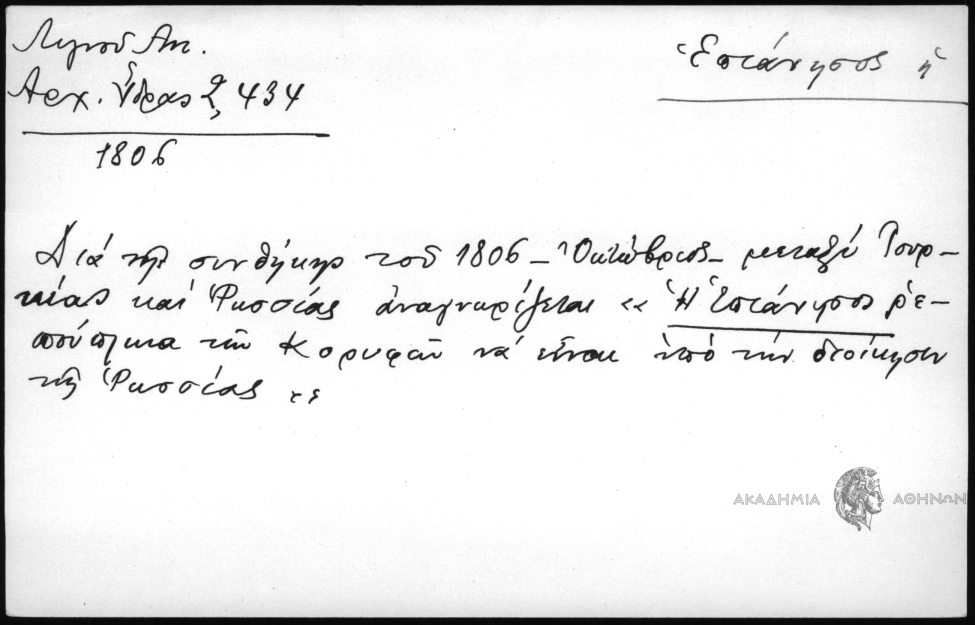 Λιγνοῦ Ἀντ.
Ἀρχ. Ὕδρας 2, 434
1806
Ἑπτάνησος ἡ
Διὰ τῆς συνθήκης τοῦ 1806 – Ὀκτώβριος – μεταξύ Τουρ-
κίας καί Ῥωσσίας ἀναγνωρίζεται « Ἡ Ἑπτάνησος ῥε-
πούπλικα τῶν Κορυφῶν νά εἶναι ὑπό τήν διοίκησιν
τῆς Ῥωσσίας »
ΑΚΑΔΗΜΙΑ ΑΘΗΝΩΝ